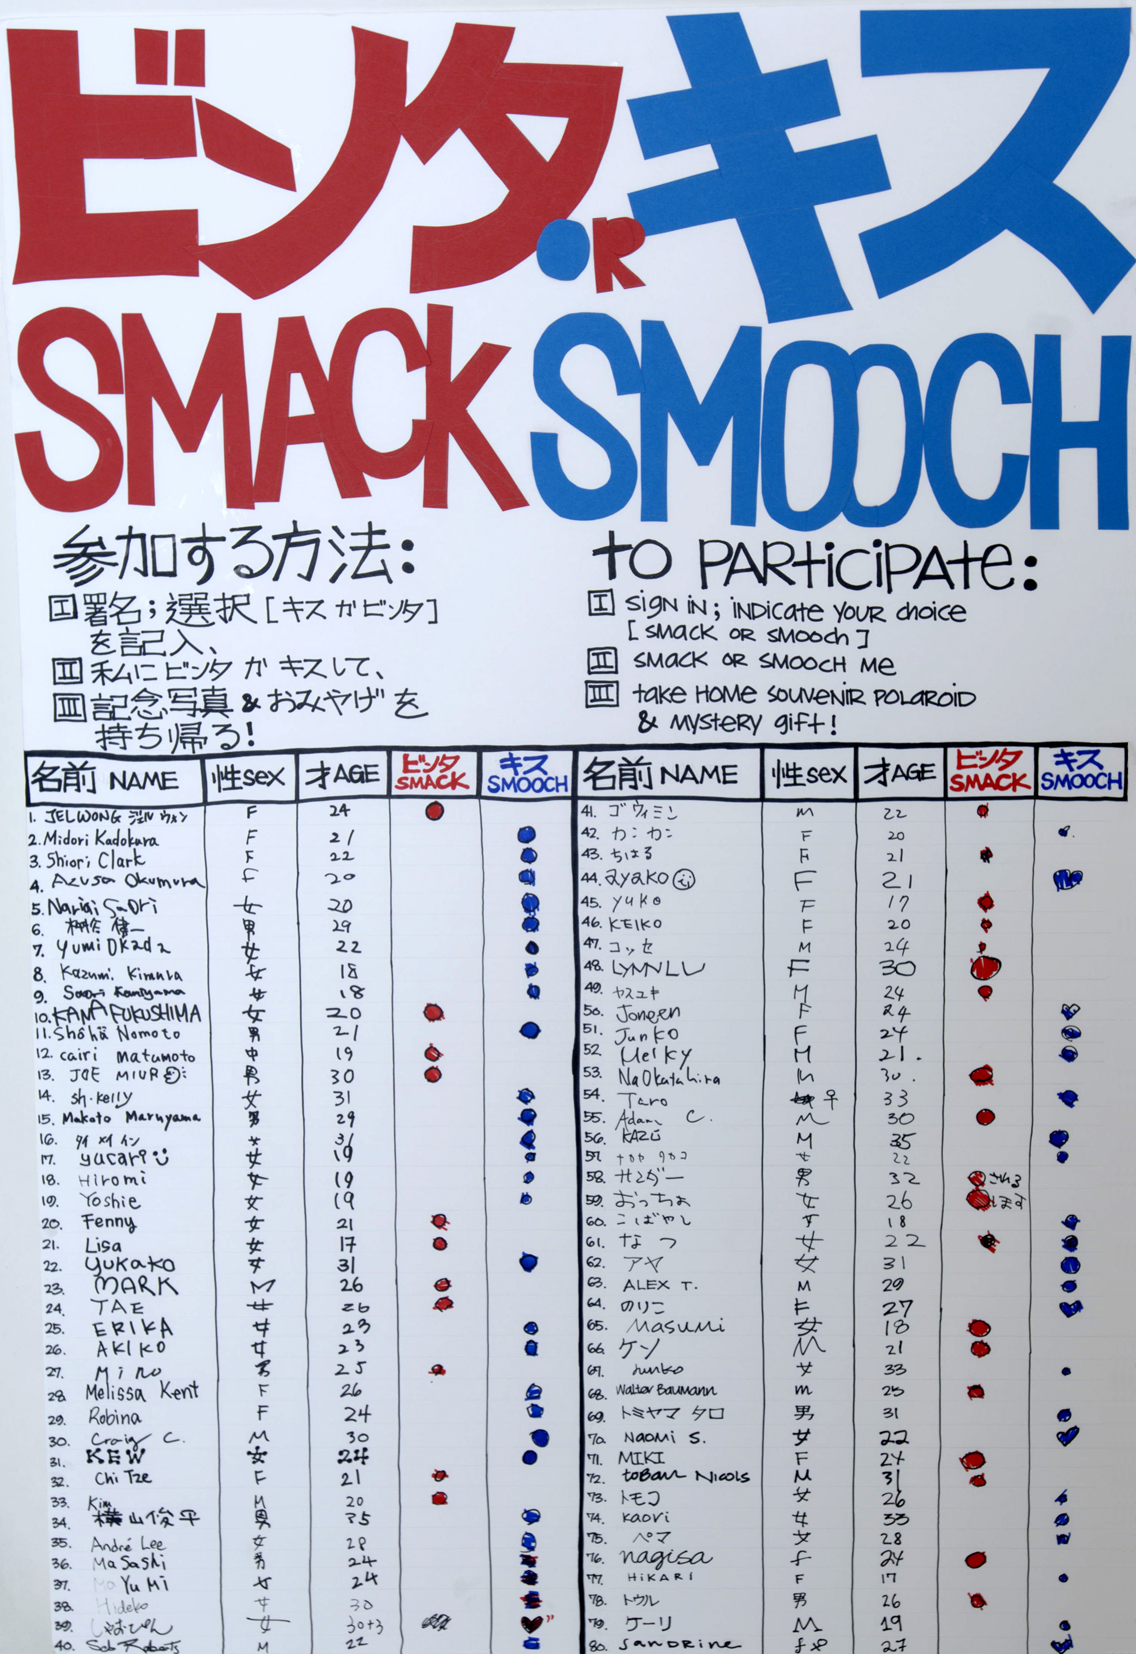 ビンタ OR キス
SMACK SMOOCH
参加する方法:
I 署名; 選択 [キスかビンタ]
を記入、
II 私にビンタ か キスして、
III 記念写真 & おみやげを
持ち帰る!
to PARticipAte:
I sign in; indicate your choice
[smack or smooch]
II smack or smooch me
III take home souvenir polaroid
& mystery gift!
名前 NAME 性sex 才AGE ビンタ SMACK キス SMOOCH
1. JEL WONG ジェル ウォン F 24
2. Midori Kadokura F 21
3. Shiori Clark F 22
4. Azusa Okumura F 20
5. 女 20
6. 男 29
7. Yumi Okada 女 22
8. Kazumi Kimura 女 18
9. Saori Kamiyama 女 18
10. KANA FUKUSHIMA 女 20
11. Shōhā Nomoto 男 21
12. cairi matumoto 中 19
13. JOE MIUR 男 30
14. sh.kelly 女 31
15. Makoto Maruyama 男 29
16. タイ メイ イン 女 31
17. yucari 女 19
18. Hiromi 女 19
19. Yoshie 女 19
20. Fenny 女 21
21. Lisa 女 17
22. yukako 女 31
23. MARK M 26
24. TAE 女 26
25. ERIKA 女 23
26. AKIKO 女 23
27. Mino 男 25
28. Melissa Kent F 26
29. Robina F 24
30. Craig C. M 30
31. KEW 女 24
32. Chi Tze F 21
33. Kim M 20
34. 横山俊平 男 35
35. André Lee 女 28
36. MaSashi 男 24
37. Mayumi 女 24
38. Hideko 女 30
39. しゃおぴん 女 30+3
40. Seb Roberts M 22
名前 NAME 性sex 才AGE ビンタ SMACK キス SMOOCH
41. ゴウィミン M 22
42. カンカン F 20
43. ちはる F 21
44. ayako F 21
45. yuko F 17
46. KEIKO F 20
47. コッセ M 24
48. LYNN LU F 30
49. ヤスユキ M 24
50. Joneen F 24
51. Junko F 24
52. Melky M 21.
53. NaOkatahira M 30.
54. Taro 早 33
55. Adam C. M 30
56. KAZU M 35
57. 女 22
58. サンダー 男 32 される
59. おっちょ 女 26 します
60. こばやし 女 18
61. なつ 女 22
62. アヤ 女 31
63. ALEX T. M 29
64. のりこ F 27
65. Masumi 女 18
66. ケン M 21
67. Junko 女 33
68. Walter Baumann m 25
69. トミヤマ タロ 男 31
70. NAOMI S. 女 22
71. MIKI F 24
72. tobaw Nicols M 31
73. トモコ 女 26
74. kaori 女 33
75. ペマ 女 28
76. nagisa f 24
77. HIKARI F 17
78. トウル 男 26
79. ケーリ M 19
80. SANDRINE f 27